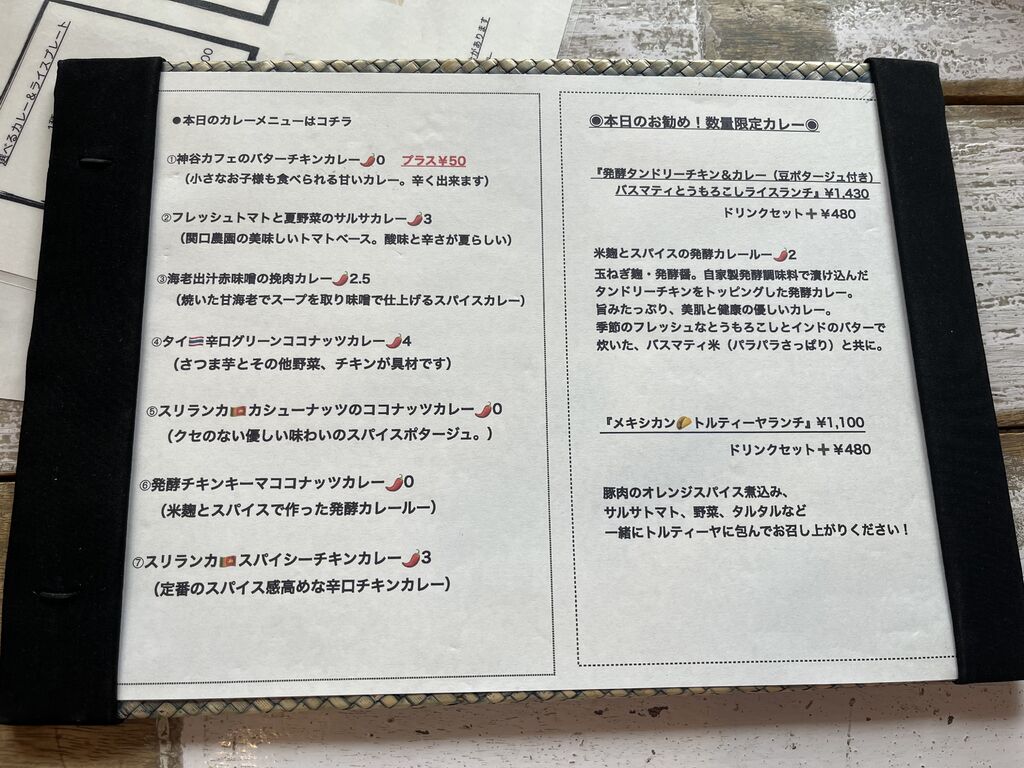 選べるカレー&ライスプレート
があります
●本日のカレーメニューはコチラ
①神谷カフェのバターチキンカレー🌶0 プラス¥50
(小さなお子様も食べられる甘いカレー。辛く出来ます)
②フレッシュトマトと夏野菜のサルサカレー🌶3
(関口農園の美味しいトマトベース。酸味と辛さが夏らしい)
③海老出汁赤味噌の挽肉カレー🌶2.5
(焼いた甘海老でスープを取り味噌で仕上げるスパイスカレー)
④タイ🇹🇭辛口グリーンココナッツカレー🌶4
(さつま芋とその他野菜、チキンが具材です)
⑤スリランカ🇱🇰カシューナッツのココナッツカレー🌶0
(クセのない優しい味わいのスパイスポタージュ。)
⑥発酵チキンキーマココナッツカレー🌶0
(米麹とスパイスで作った発酵カレールー)
⑦スリランカ🇱🇰スパイシーチキンカレー🌶3
(定番のスパイス感高めな辛口チキンカレー)
◉本日のお勧め!数量限定カレー◉
『発酵タンドリーチキン&カレー(豆ポタージュ付き)
バスマティとうもろこしライスランチ』¥1,430
ドリンクセット➕¥480
米麹とスパイスの発酵カレールー🌶2
玉ねぎ麹・発酵醤。自家製発酵調味料で漬け込んだ
タンドリーチキンをトッピングした発酵カレー。
旨みたっぷり、美肌と健康の優しいカレー。
季節のフレッシュなとうもろこしとインドのバターで
炊いた、バスマティ米(パラパラさっぱり)と共に。
『メキシカン🌮トルティーヤランチ』¥1,100
ドリンクセット➕¥480
豚肉のオレンジスパイス煮込み、
サルサトマト、野菜、タルタルなど
一緒にトルティーヤに包んでお召し上がりください!